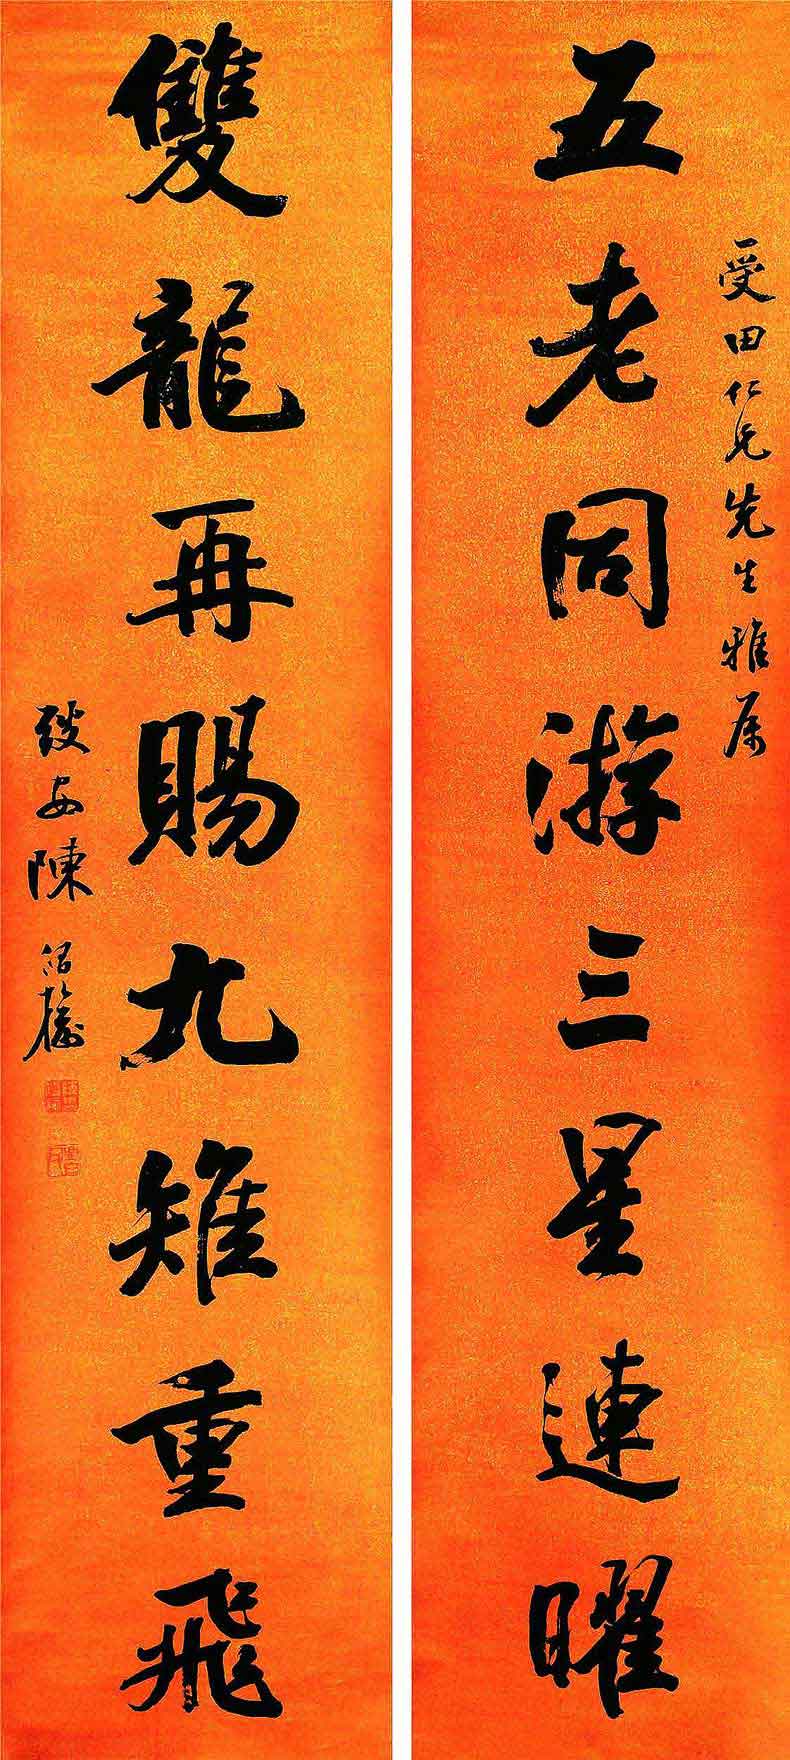 受田仁兄先生雅属
五老同游三星連曜
雙龍再賜九雉重飛
安陳